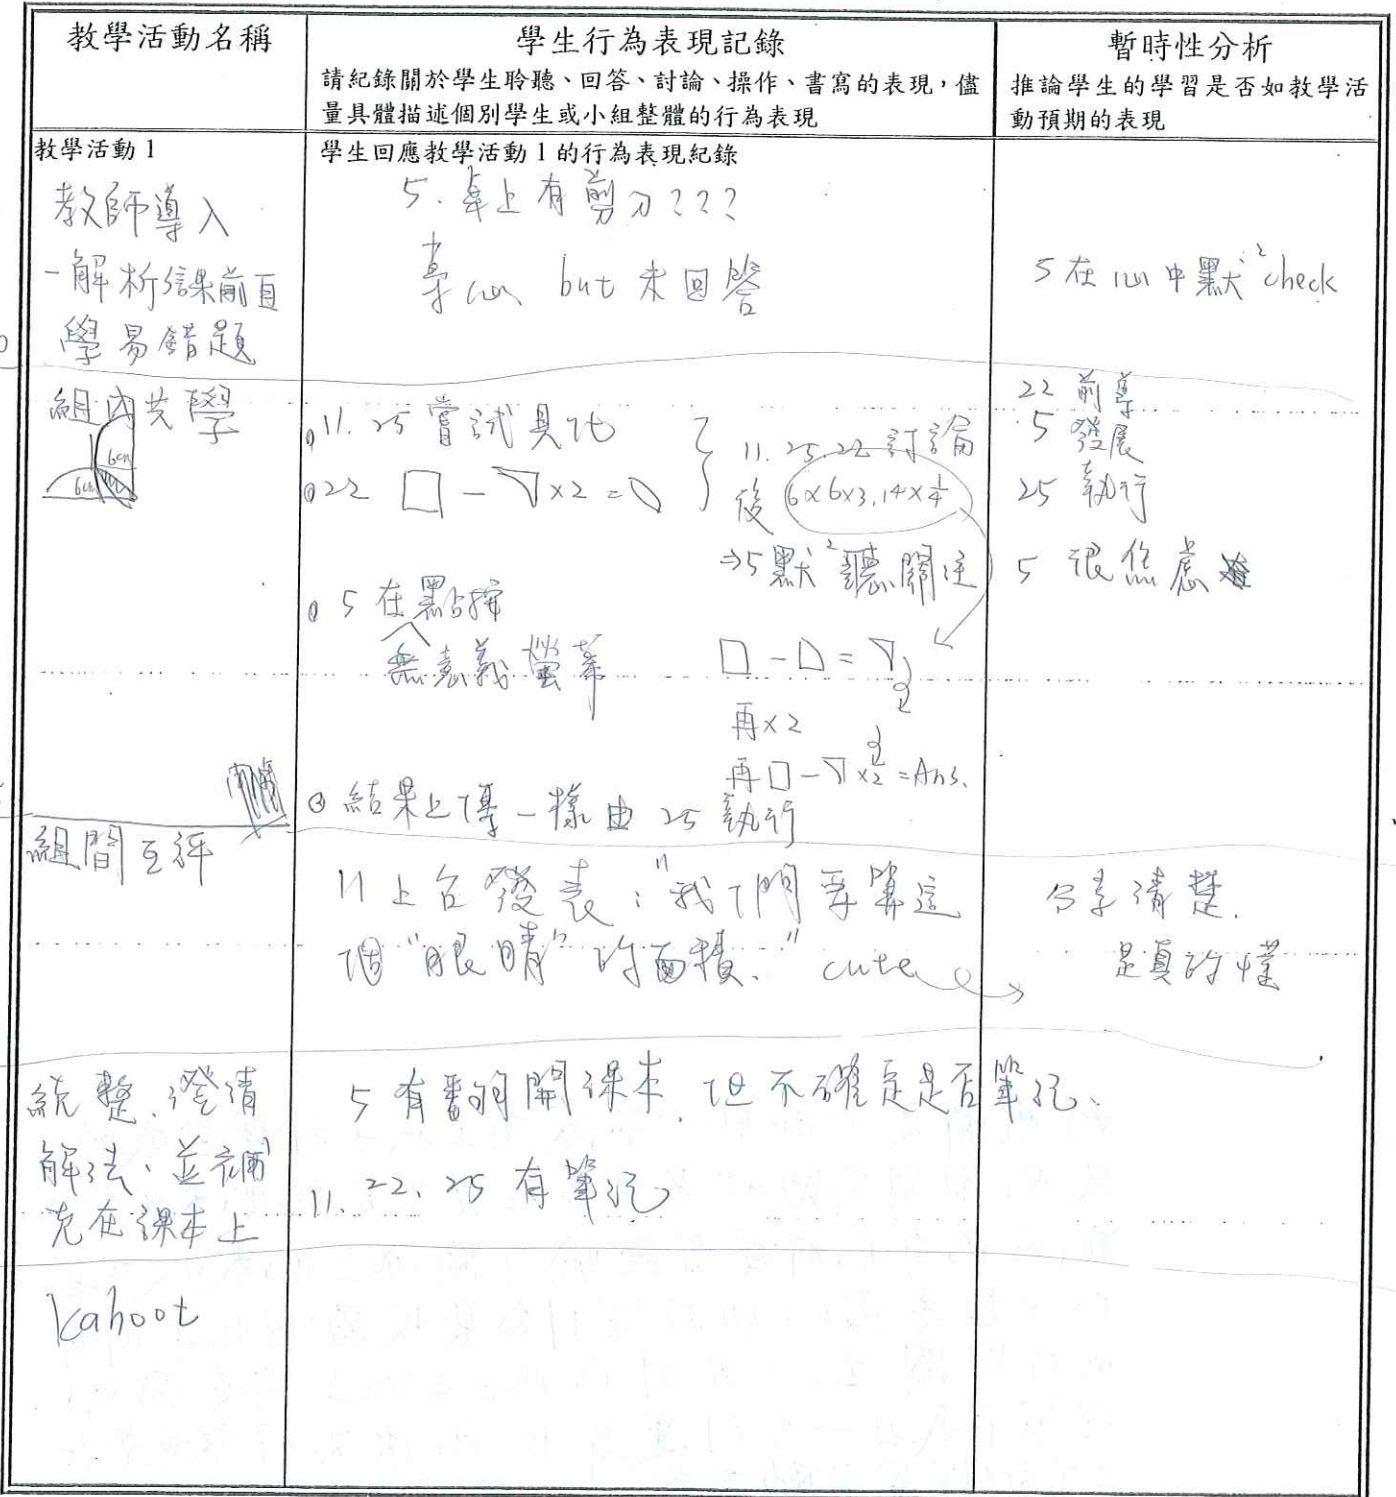 教學活動名稱
學生行為表現記錄
請紀錄關於學生聆聽、回答、討論、操作、書寫的表現，儘
量具體描述個別學生或小組整體的行為表現
暫時性分析
推論學生的學習是否如教學活
動預期的表現
教學活動1
學生回應教學活動1的行為表現紀錄
教師導入
-解析課前自
學易錯題
5. 桌上有剪刀???
專心 but 未回答
5在心中默² check
組內共學
6cm
6cm
11. 25嘗試其他
22 □ - ×2 =
11. 25.22 討論
後 6×6×3.14×1/4
→5默²聽關注
5 在點按
無意義螢幕
□ - =
再×2
再□ - ×2 = Ans.
結果上傳一樣由 25 執行
22 前導
5 發展
25 執行
5 很焦慮
組間互評
11 上台發表："我們要算這
個"眼睛"的面積." cute
分享清楚.
是真的懂
統整、澄清
解法、並補
充在課本上
5 有翻開課本, 但不確定是否筆記、
11. 22. 25 有筆記
kahoot